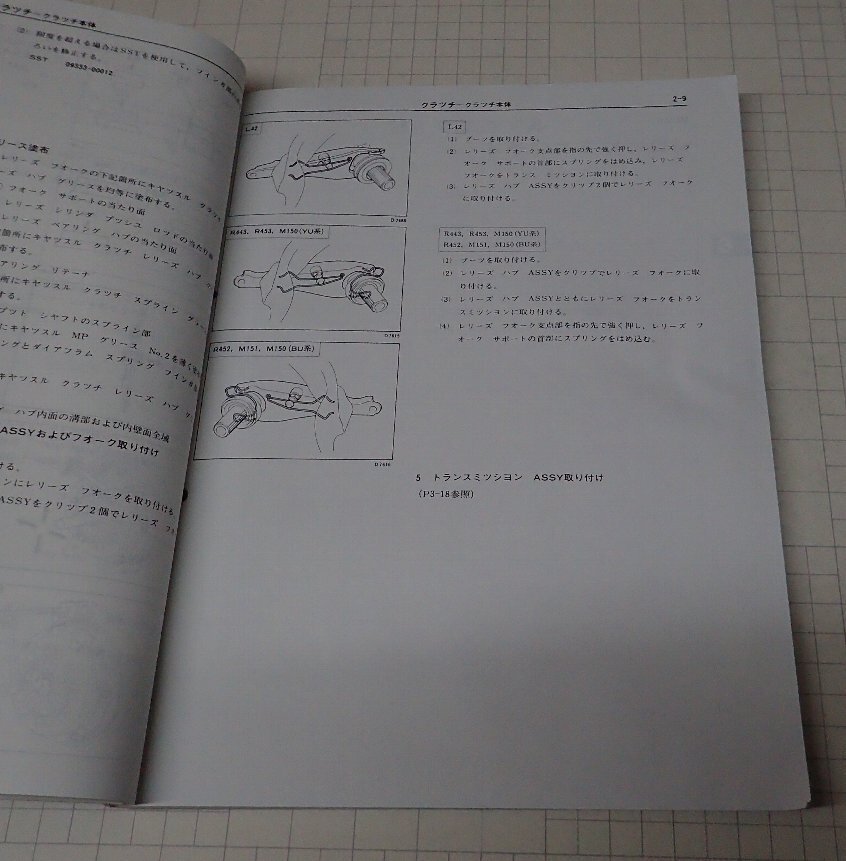 クラツチ－クラツチ本体
(2) 限度を超える場合はSSTを使用して，フイン
ろいを修正する。
SST 09333-00012
リース塗布
レリーズ フオークの下記箇所にキヤツスル クラツ
ーズ ハブ グリースを均等に塗布する。
フオーク サポートの当たり面
レリーズ シリンダ プツシユ ロツドの当たり面
レリーズ ベアリング ハブの当たり面
箇所にキヤツスル クラツチ レリーズ ハブ
布する。
アリング リテーナ
所にキヤツスル クラツチ スプライン
する。
プツト シヤフトのスプライン部
にキヤツスル MP グリース No.2を
ングとダイアフラム スプリング フイン
キヤツスル クラツチ レリーズ ハブ
ハブ内面の溝部および内壁面全域
ASSYおよびフオーク取り付け
ける。
ンにレリーズ フオークを取り付ける
ASSYをクリツプ2個でレリーズ
クラツチ－クラツチ本体 2-9
L42
R443，R453，M150(YU系)
D 7615
R452，M151，M150(BU系)
D 7616
L42
(1) ブーツを取り付ける。
(2) レリーズ フオーク支点部を指の先で強く押し，レリーズ フ
オーク サポートの首部にスプリングをはめ込み，レリーズ
フオークをトランス ミツシヨンに取り付ける。
(3) レリーズ ハブ ASSYをクリツプ2個でレリーズ フオーク
に取り付ける。
R443，R453，M150(YU系)
R452，M151，M150(BU系)
(1) ブーツを取り付ける。
(2) レリーズ ハブ ASSYをクリツプでレリーズ フオークに取
り付ける。
(3) レリーズ ハブ ASSYとともにレリーズ フオークをトラン
スミツシヨンに取り付ける。
(4) レリーズ フオーク支点部を指の先で強く押し，レリーズ フ
オーク サポートの首部にスプリングをはめ込む。
5 トランスミツシヨン ASSY取り付け
(P3-18参照)